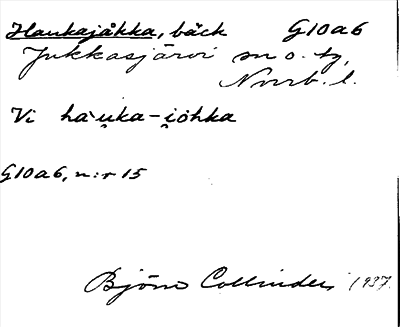 Haukajåkka, bäck G10a6
Jukkasjärvi sn o. tg,
Norrb. l.
Vi hàu̯ka-i̯ohka
G10a6, n:r 15
Björn Collinder 1937.